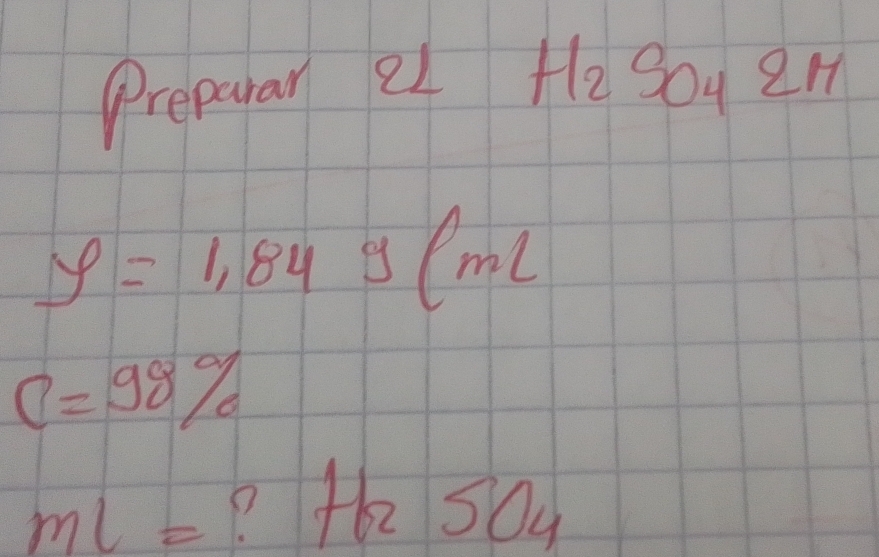 Preparar 2L H2SO4 2M
ρ = 1,84 g/ml
C = 98%
ml = ? H2SO4